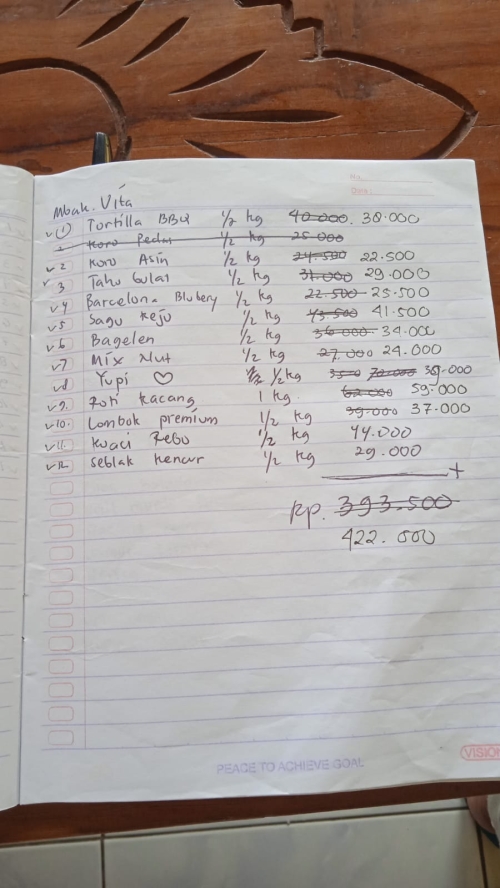 Mbak. Vita
v (1) Tortilla BBQ 1/2 kg 40.000. 38.000
2 Koro Pedas 1/2 kg 25.000
v 2 Koro Asin 1/2 kg 24.500 22.500
v 3 Tahu bulat 1/2 kg 31.000 29.000
v 4 Barcelona Blubery 1/2 kg 22.500 25.500
v 5 Sagu Keju 1/2 kg 43.500 41.500
v 6 Bagelen 1/2 kg 36.000 34.000
v 7 Mix Nut 1/2 kg 27.000 24.000
v 8 Yupi ♡ 1/2 kg 70.000 38.000
v 9. Roti Kacang 1 kg 62.000 59.000
v 10. Lombok premium 1/2 kg 39.000 37.000
v 11. Kuaci Rebo 1/2 kg 44.000
v 12. Seblak Kencur 1/2 kg 29.000
+
Rp. 393.500
422.000
PEACE TO ACHIEVE GOAL
VISION